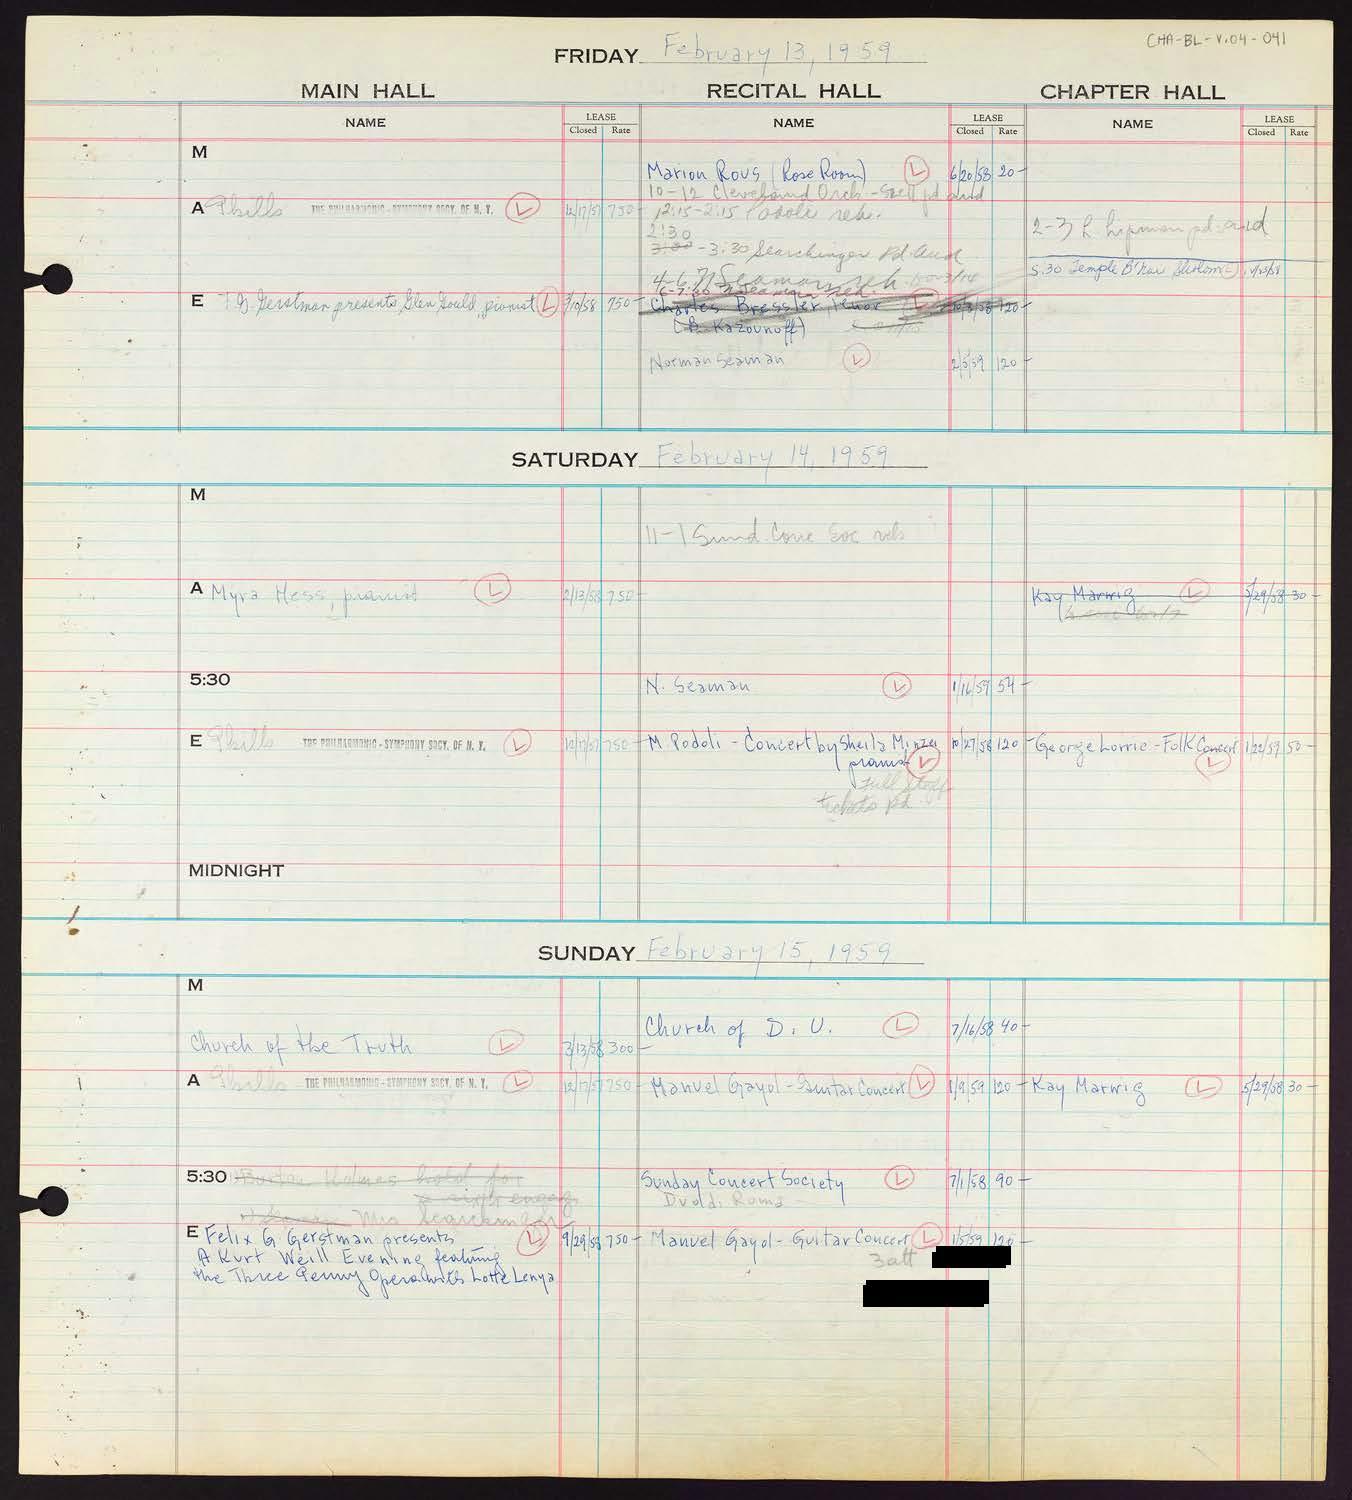 CHA-BL-V.04-041
FRIDAY February 13, 1959
MAIN HALL RECITAL HALL CHAPTER HALL
NAME LEASE Closed Rate NAME LEASE Closed Rate NAME LEASE Closed Rate
M
Marion Rous (Rose Room) L 6/20/58 20-
10-12 Cleveland Orch - pd aud
A Phills THE PHILHARMONIC-SYMPHONY SOCY. OF N. Y. L 12/17/57 750-
12:15-2:15 Podole reh.
2-3 L. Lipman pd. aud
2:30
3:00 - 3:30 Searchinger Pd. aud
5.30 Temple B'nai Sholom
4-6 Seaman reh
6-7:30 Seaman reh.
E F.G. Gerstman presents, Glen Gould, pianist L 3/10/58 750-
Charles Bressler, Tenor L 120-
(B. Kazounoff)
Norman Seaman L 2/5/59 120-
SATURDAY February 14, 1959
M
11-1 Sund. Conc Soc reh
A Myra Hess, pianist L 2/13/58 750-
Kay Marwig L 5/29/58 30-
5:30
N. Seaman L 1/16/59 54-
E Phills THE PHILHARMONIC-SYMPHONY SOCY. OF N. Y. L 12/17/57 750-
M. Podoli - Concert by Sheila Minzer 10/27/58 120-
George Lorrie - Folk Concert 1/22/59 50-
pianist L
L
Full Staff
tickets pd.
MIDNIGHT
SUNDAY February 15, 1959
M
Church of D. U. L 7/16/58 40-
Church of the Truth L 3/13/58 300-
A Phills THE PHILHARMONIC-SYMPHONY SOCY. OF N. Y. L 12/17/57 750-
Manuel Gayol - Guitar Concert L 1/9/59 120-
Kay Marwig L 5/29/58 30-
5:30 Burton Holmes hold for
Sunday Concert Society L 7/1/58 90-
Duo di Roma
Mrs Searchinger
E Felix G Gerstman presents L 9/29/58 750-
Manuel Gayol - Guitar Concert L 1/5/59 120-
A Kurt Weill Evening featuring
the Three Penny Opera with Lotte Lenya